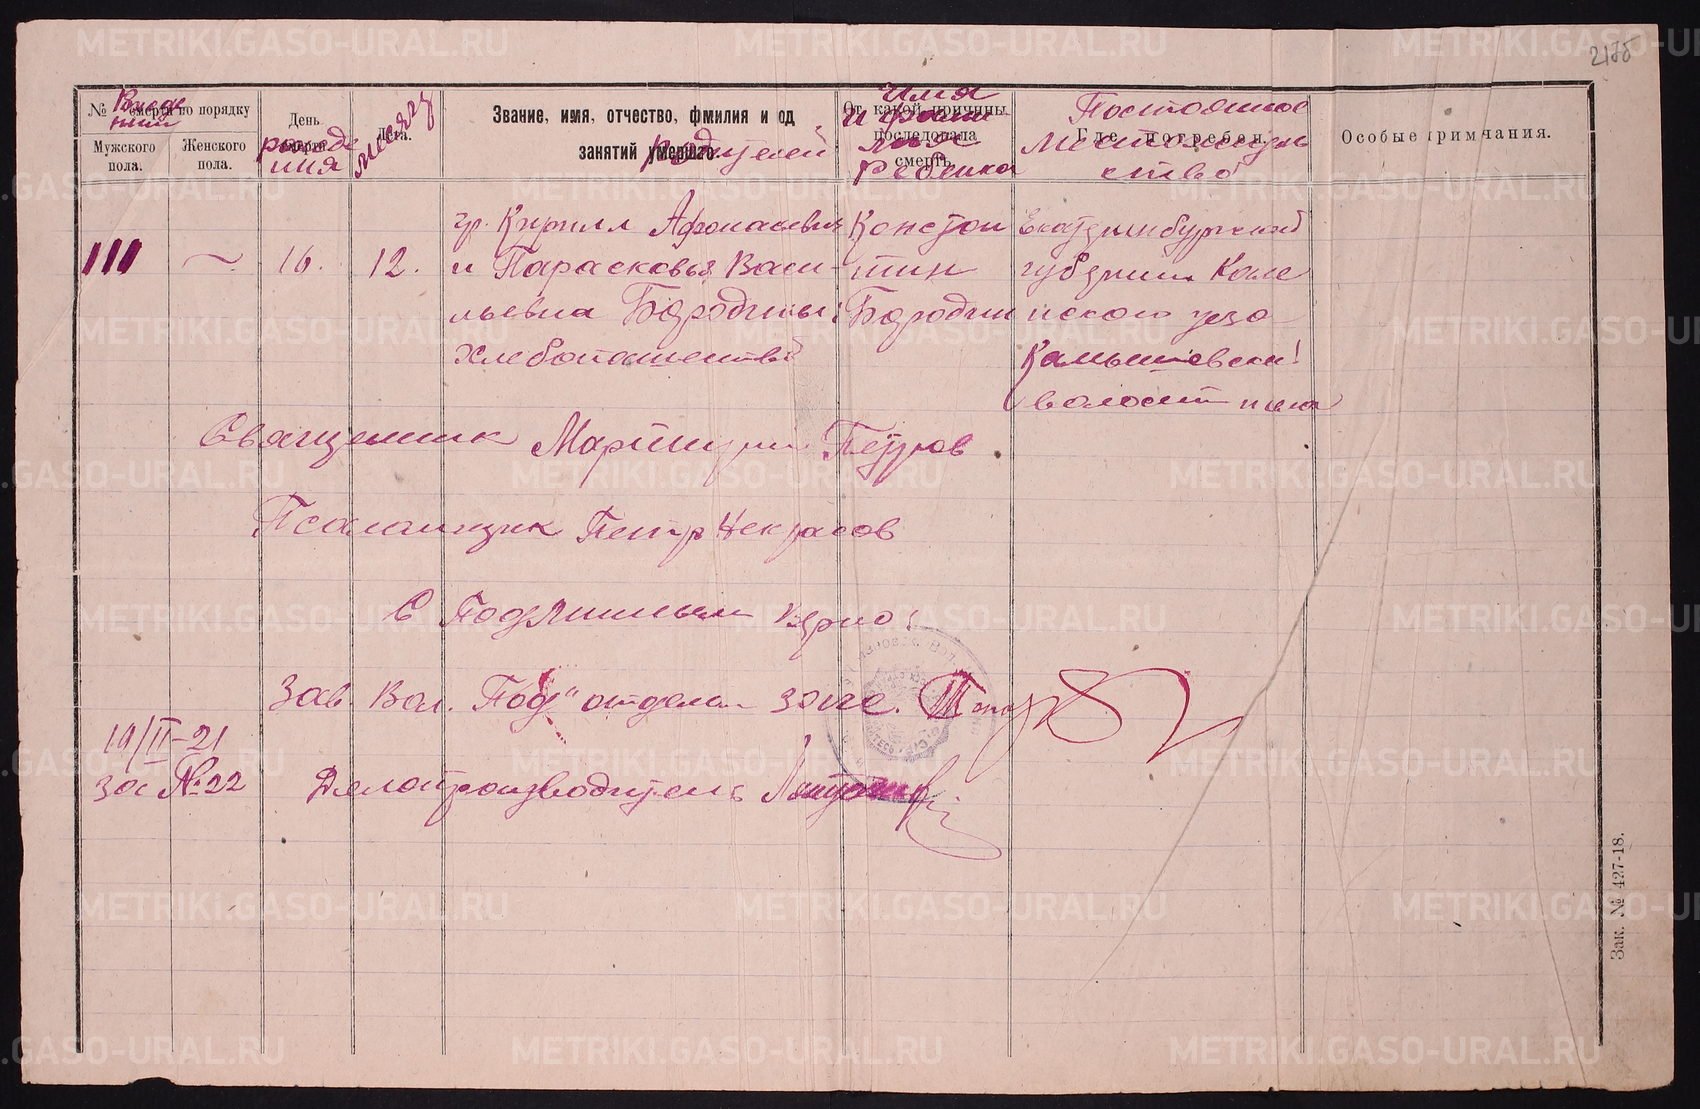 2175
№ смерти по порядку
Рожде
ния
Мужского пола.
Женского пола.
День
смерти.
рожде
ния
Лета.
месяц
Звание, имя, отчество, фмилия и од
занятий умершаго.
родителей
От какой причины
последовала
смерть.
Имя
и фами
лия
Ребенка
Где погребен.
Постоянное
Местожитель
ство
Особые примчания.
111
16.
12.
гр. Кирилл Афонасевич
и Парасковья Васи-
льевна Бородины
Хлебопашество
Констан
тин
Бородин
Екатеринбургской
губернии Каме
нского уезд
Камышевски
волости
Священник Петров
Псаломщик Петр Некрасов
С Подлинным верно:
Зав. Вол. Под"отделом загс.
19/II-21
заг №22
Делопроизводитель
Зак. № 427-18.
METRIKI.GASO-URAL.RU